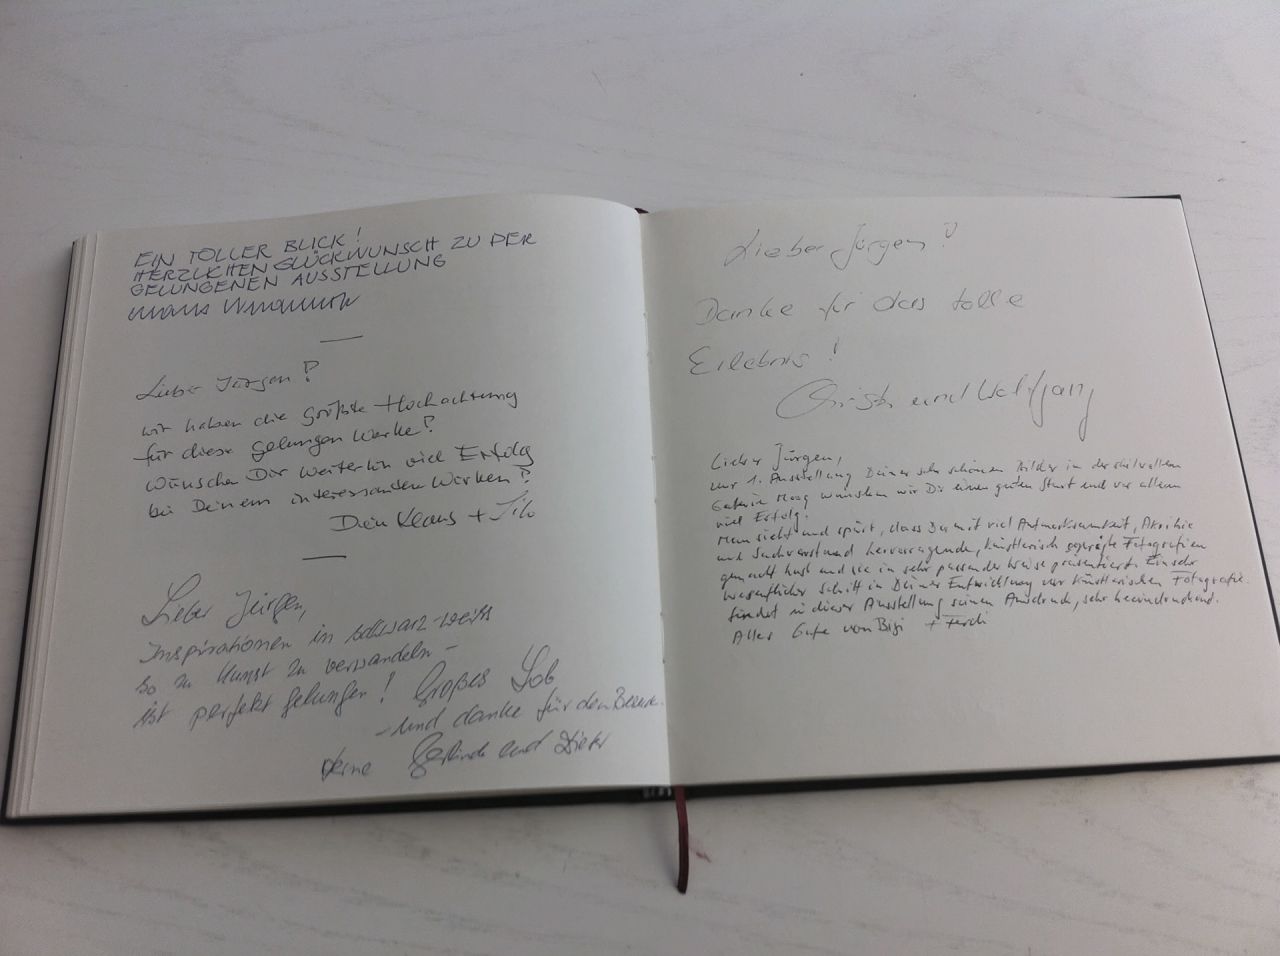 EIN TOLLER BLICK!
HERZLICHEN GLÜCKWUNSCH ZU DER
GELUNGENEN AUSSTELLUNG
Lieber Jürgen!
wir haben die größte Hochachtung
für diese gelungen Werke!
Wünschen Dir weiterhin viel Erfolg
bei Deinem interessanten Wirken!
Dein Klaus +
Lieber Jürgen,
Inspirationen in schwarz-weiß
so zu Kunst zu verwandeln –
ist perfekt gelungen! Großes Lob
– und danke für den
Gerlinde und Dieter
Lieber Jürgen!
Danke für das tolle
Erlebnis!
und Wolfgang
Lieber Jürgen,
zur 1. Ausstellung Deiner sehr schönen Bilder in der stilvollen
Galerie wünschen wir Dir einen guten Start und vor allem
viel Erfolg.
Man sieht und spürt, dass Du mit viel Aufmerksamkeit, Akribie
und Sachverstand hervorragende, künstlerisch geprägte Fotografien
gemacht hast und sie in sehr passender Weise präsentierst. Ein sehr
wesentlicher Schritt in Deiner Entwicklung zur künstlerischen Fotografie
findet in dieser Ausstellung seinen Ausdruck, sehr beeindruckend.
Alles Gute von Bigi + Ferdi